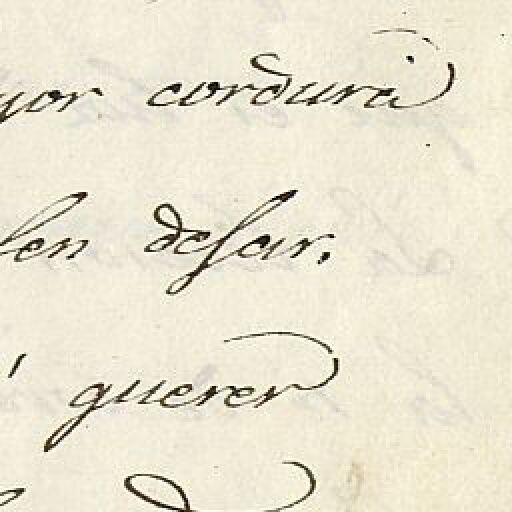 yor cordura
len dejar.
querer